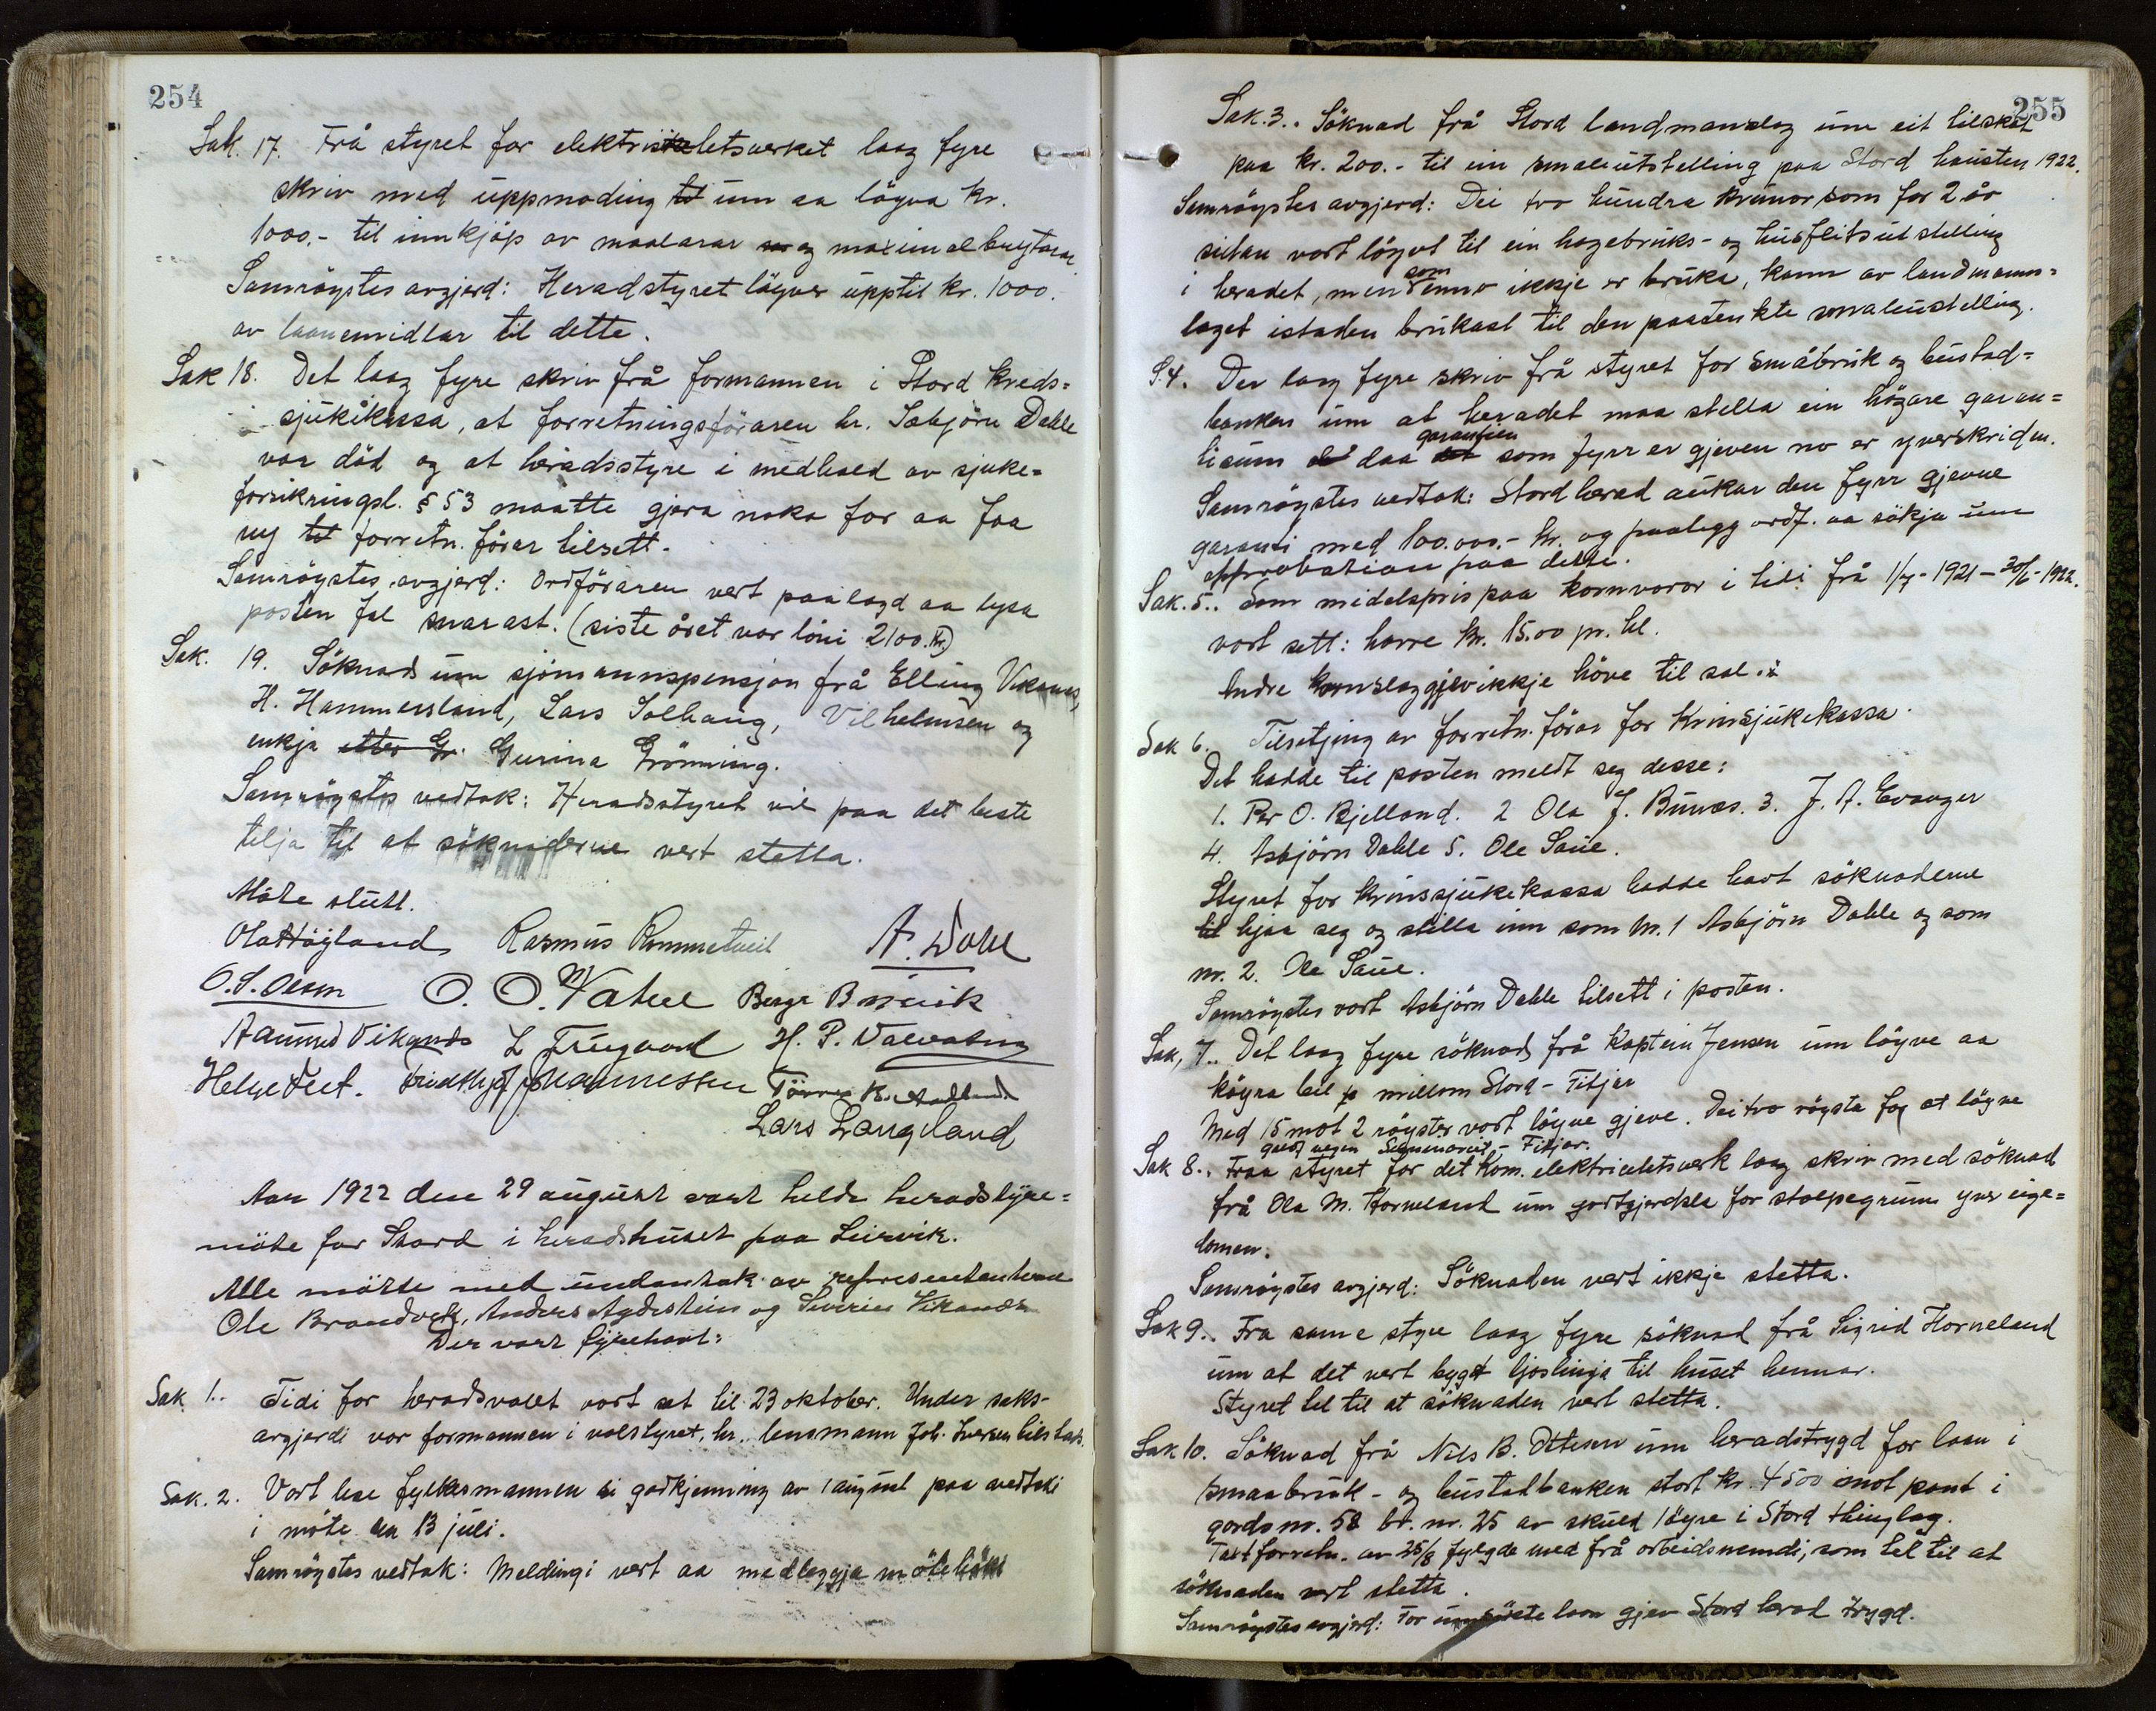 254
Sak. 17. Frå styret for elektrisitetsverket laag fyre
skriv med uppmoding um aa løyva kr.
1000.- til innkjøp av maalarar og maximalbrytarar.
Samrøystes avgjerd: Heradstyret løyver upptil kr. 1000.
av laanemidlar til dette.
Sak 18. Det laag fyre skriv frå formannen i Stord kreds=
sjukekassa, at forretningsføraren hr. Sæbjörn Dahle
var död og at heradsstyre i medhald av sjuke=
forsikringsl. § 53 maatte gjera noko for aa faa
ny forretn. förar tilsett.
Samröystes avgjerd: Ordföraren vert paalagd aa lysa
posten snarast. (siste året var löni 2100.kr)
Sak. 19. Söknad um sjömannspensjon frå Elling Vikanes,
H. Hammersland, Lars Solhaug, Vilhelmsen og
enkja etter Gr. Gurina Grönning.
Samröystes vedtak: Heradsstyret vil paa det beste
telja til at söknaderne vert stetta.
Möte slutt.
Ola Höyland Rasmus Rommetveit A. Dahl
O. S. Olsen O. O. Vatne Berge
Aamund Vikanes H. P. Valvatna
Helge Tveit. Fridthjof Johannessen
Lars Langeland
Aar 1922 den 29 august vart helde heradstyre=
möte for Stord i heradshuset paa Leirvik.
Alle mötte med undantak av representantane
Ole Brandvik, Anders Agdestein og Severin Vikanes
Der vart fyrehavt:
Sak 1.. Tidi for heradsvalet vart sat til 23 oktober. Under saks-
avgjerdi var formannen i valstyret, hr. lensmann Joh. Iversen tilstads.
Sak. 2. Vart lese fylkesmannen si godkjenning av 1 august paa vedtaki
i möte den 13 juli.
Samröystes vedtak: Meldingi vert aa medleggja möteboki
255
Sak. 3.. Söknad frå Stord landmannslag um eit tilskot
paa kr. 200.- til ein smaleutstelling paa Stord hausten 1922.
Samröystes avgjerd: Dei tvo hundra krunor som for 2 år
sidan vart löyvt til ein hagebruks- og husflitsutstelling
i heradet, men som enno ikkje er bruka, kann av landmanns=
laget istaden brukast til den paatenkte smaleutstelling.
S. 4. Der laag fyre skriv frå styret for Småbruk og bustad=
banken um at heradet maa stella ein högare garan=
tisum daa garantien som fyrr er gjeven no er yverskriden.
Samröystes vedtak: Stord herad aukar den fyrr gjevne
garanti med 100.000.- kr. og paalegg ordf. aa sökja um
approbation paa dette.
Sak. 5.. Som midelspris paa kornvoror i tidi frå 1/7-1921-30/6-1922.
vart sett: havre kr. 15.00 pr. hl.
Andre kornslag gjev ikkje höve til sal.
Sak 6. Tilsetjing av forretn. förar for Krinssjukekassa.
Det hadde til posten meldt seg desse:
1. Per O. Bjelland. 2 Ola J. Bunes. 3. J. A. Evanger
4. Asbjörn Dahle 5. Ole Saue.
Styret for krinssjukekassa hadde havt söknaderne
til hjaa seg og stilla inn som nr. 1 Asbjörn Dahle og som
nr. 2. Ole Saue.
Samröystes vart Asbjörn Dahle tilsett i posten.
Sak, 7.. Det laag fyre söknad frå kaptein Jensen um löyve aa
köyra bil millom Stord - Fitjar
Med 15 mot 2 röyster vart löyve gjeve. Dei tvo röysta for at löyve
galdt vegen - Fitjar.
Sak 8.. Fraa styret for det kom. elektricitetsverk laag skriv med söknad
frå Ola M. Horneland um godtgjerdsle for stolpegrunn yver eige=
domen.
Samröystes avgjerd: Söknaden vert ikkje stetta.
Sak 9.. Fra same styre laag fyre söknad frå Sigrid Horneland
um at det vert bygt ljoslinja til huset hennar.
Styret tel til at söknaden vert stetta.
Sak 10. Söknad frå Nils B. Ottesen um heradstrygd for laan i
smaabruk- og bustadbanken stort kr. 4500 imot pant i
gards nr. 58 br. nr. 25 av skuld 1 öyre i Stord thinglag.
Taxtforretn. av 25/8 fylgde med frå arbeidsnemdi, som tel til at
söknaden vert stetta.
Samröystes avgjerd: For umsökte laan gjev Stord herad trygd.